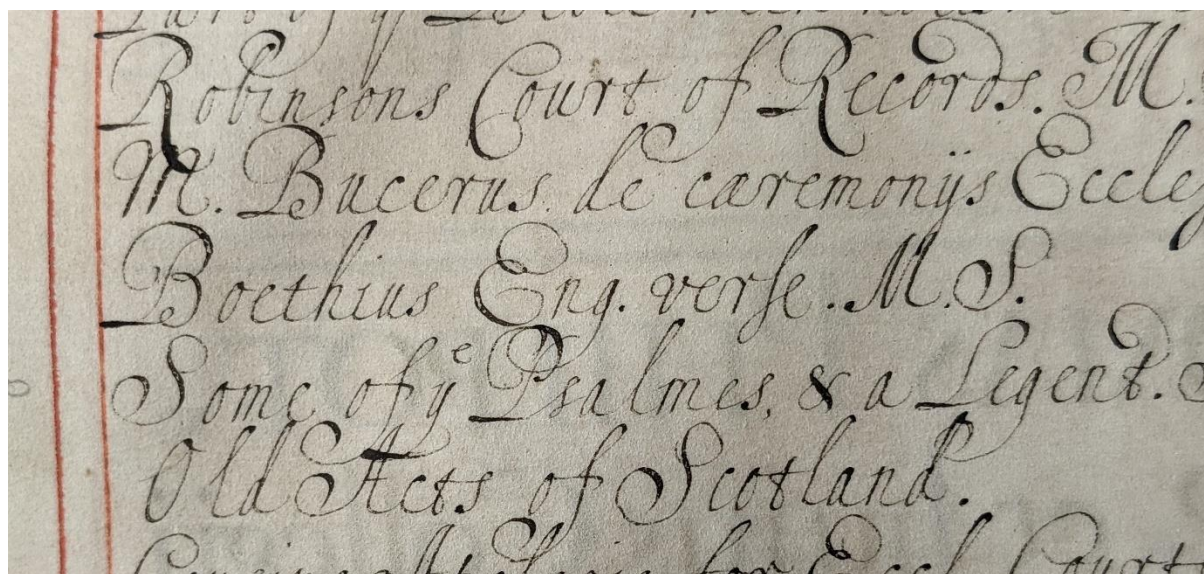 Robinsons Court of Records. M.
M. Bucerus de cæremonijs Eccles
Boethius Eng. verse. M.S.
Some of yᵉ Psalmes, & a Legent.
Old Acts of Scotland.
for Eccl. Court